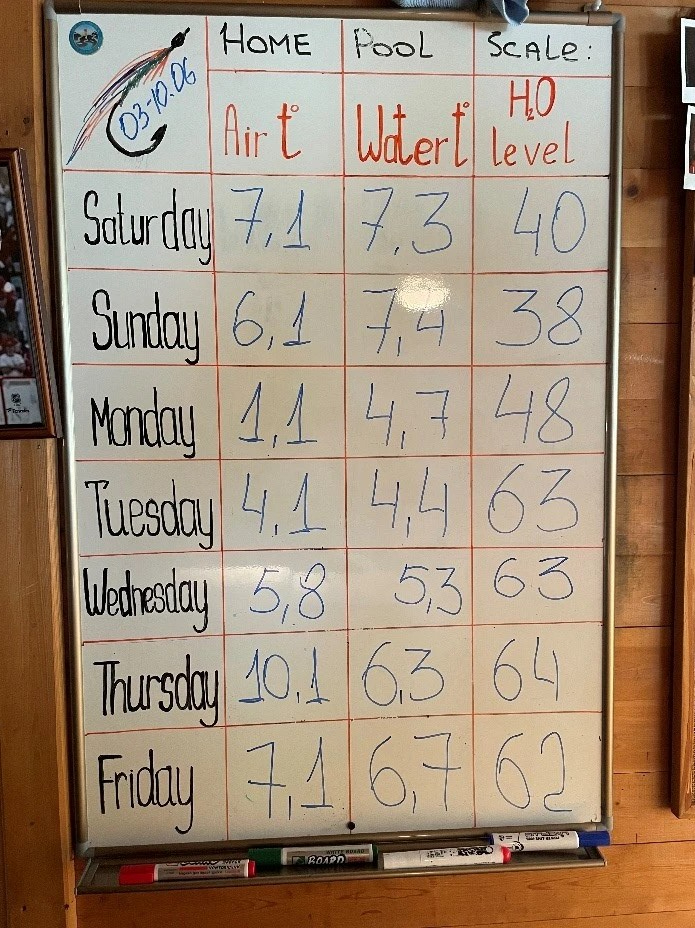 03-10.06
HOME POOL SCALE:
Air t° Water t° H2O level
Saturday 7,1 7,3 40
Sunday 6,1 7,4 38
Monday 1,1 4,7 48
Tuesday 4,1 4,4 63
Wednesday 5,8 5,3 63
Thursday 10,1 6,3 64
Friday 7,1 6,7 62
WHITE BOARD
BOARD